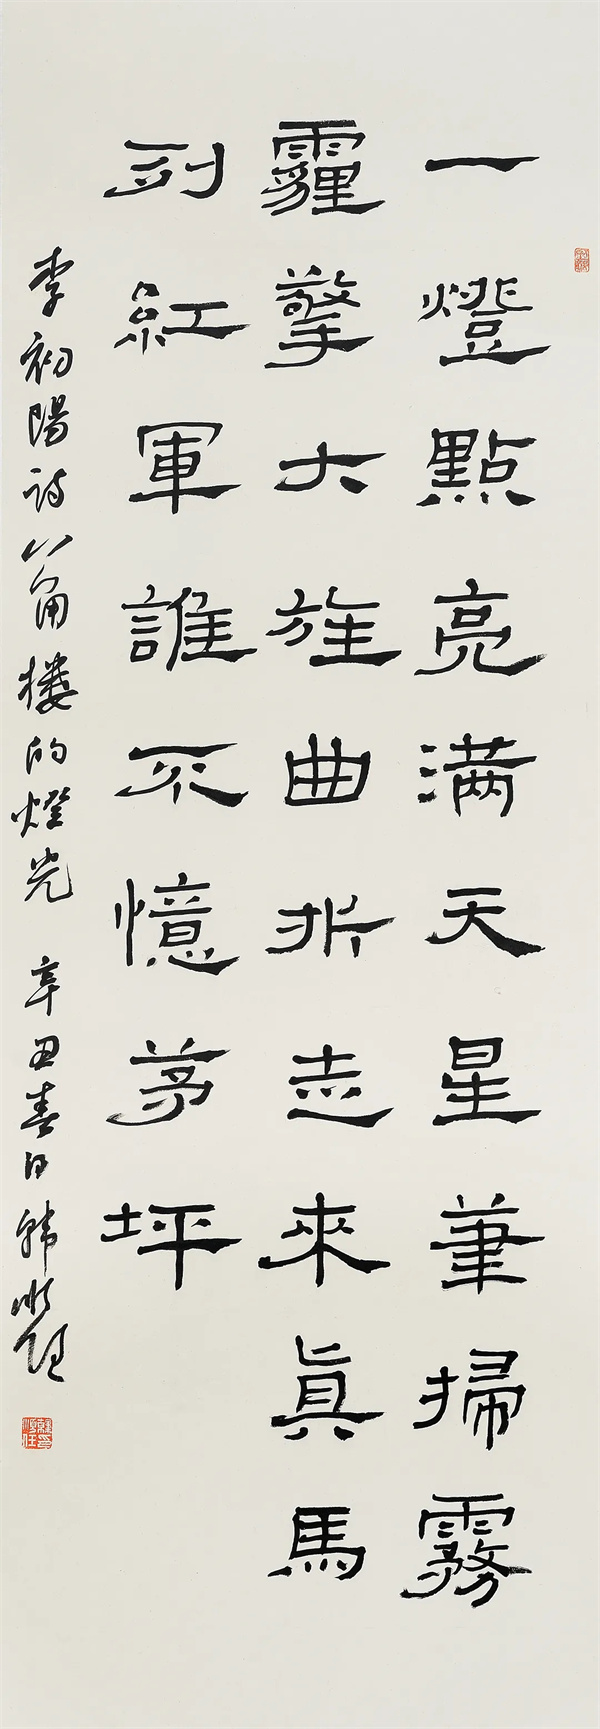 一燈點亮满天星筆掃霧
霾擎大旌曲折志來眞馬
列紅軍誰不憶茅坪
李初陽詩八角楼的燈光 辛丑春日韩顺任